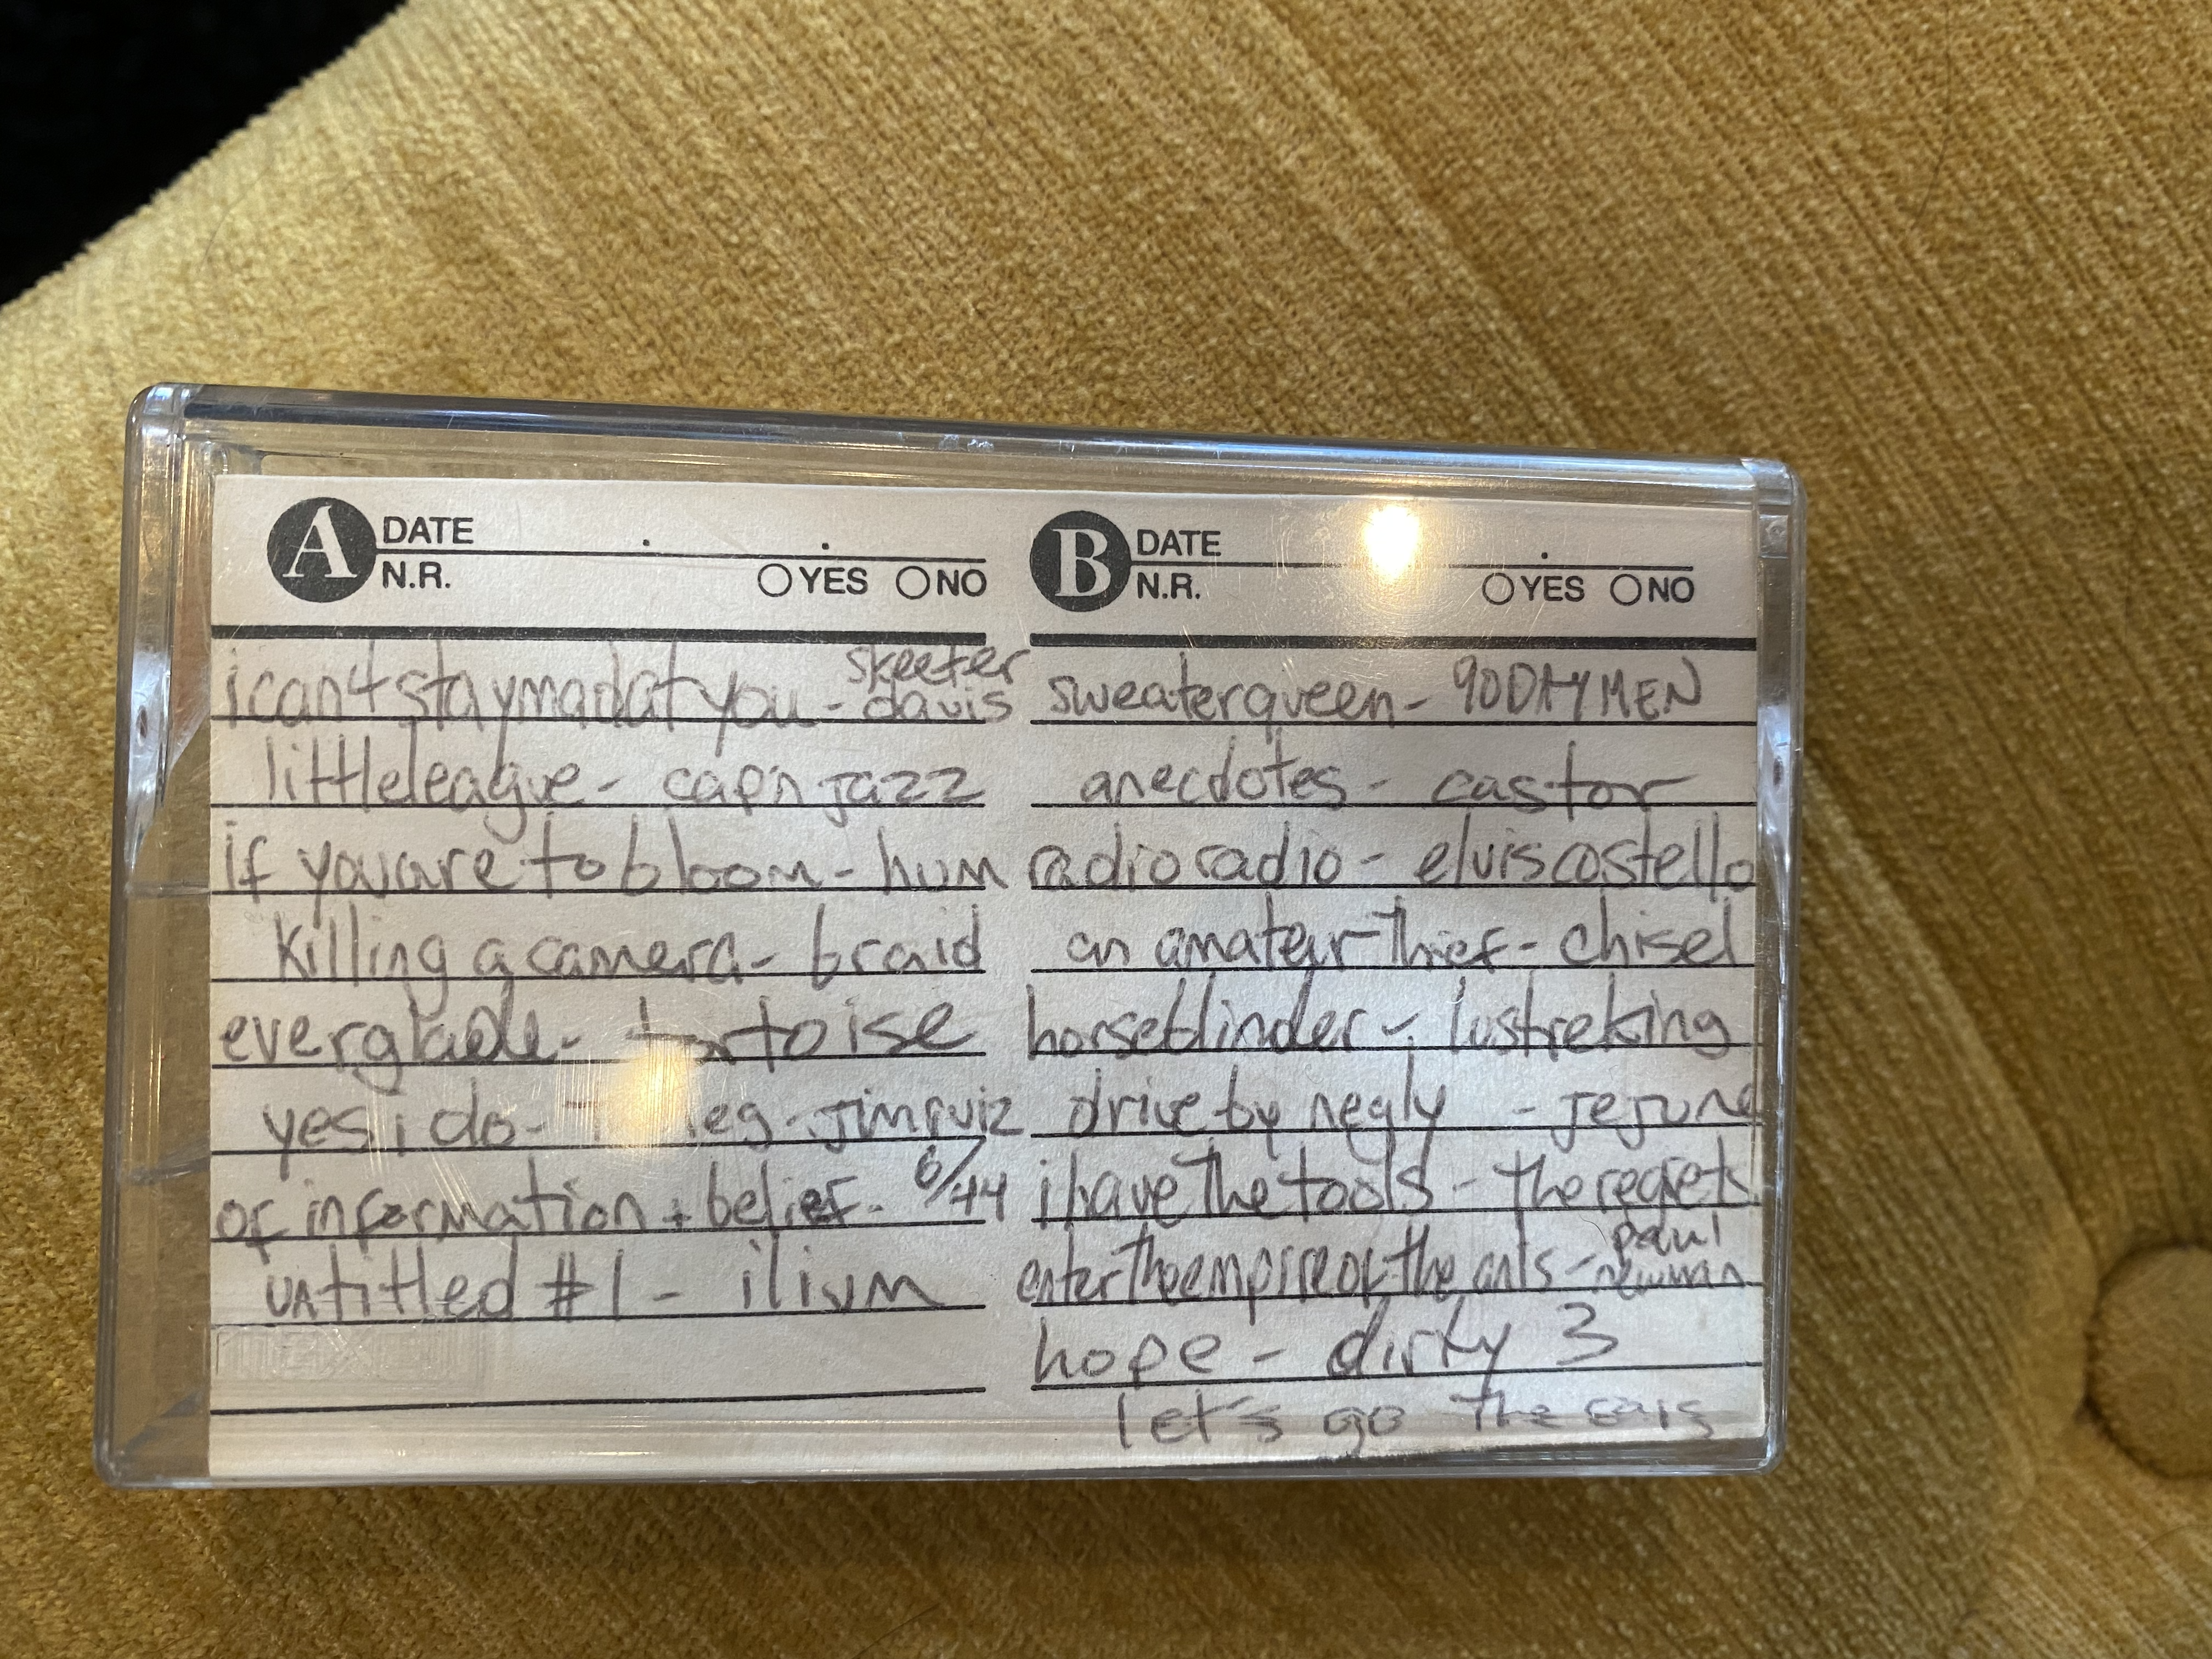 A DATE
N.R. YES NO
icantstaymadatyou - skeeter davis
littleleague - cap'n jazz
if youare to bloom - hum
killing a camera - braid
everglade - tortoise
yes i do - jimruiz
of information + belief - 6/44
untitled #1 - ilium
B DATE
N.R. YES NO
sweaterqueen - 90DAYMEN
anecdotes - castor
radioradio - elviscostello
an amateur thief - chisel
horseblinder - lustreking
drive by negly - jejune
ihavethetools - theregrets
entertheempireofthe - paul newman
hope - dirty 3
let's go the cars